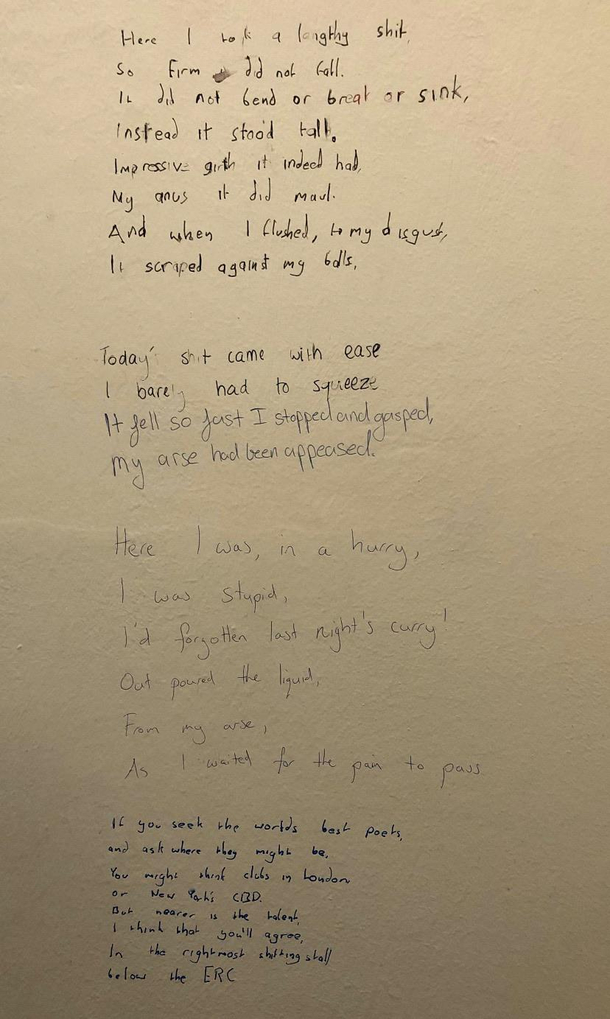 Here I took a lengthy shit,
So firm it did not fall.
It did not bend or break or sink,
Instead it stood tall.
Impressive girth it indeed had,
My anus it did maul.
And when I flushed, to my disgust,
It scraped against my balls,
Today's shit came with ease
I barely had to squeeze
It fell so fast I stopped and gasped,
my arse had been appeased.
Here I was, in a hurry,
I was stupid,
I'd forgotten last night's curry!
Out poured the liquid,
From my arse,
As I waited for the pain to pass
If you seek the worlds best poets,
and ask where they might be,
You might think clubs in London
or New York's CBD.
But nearer is the talent,
I think that you'll agree,
In the rightmost shitting stall
below the ERC